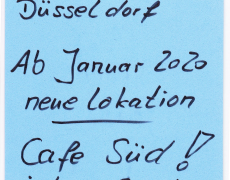 Düsseldorf
Ab Januar 2020
neue Lokation
Cafe Süd!